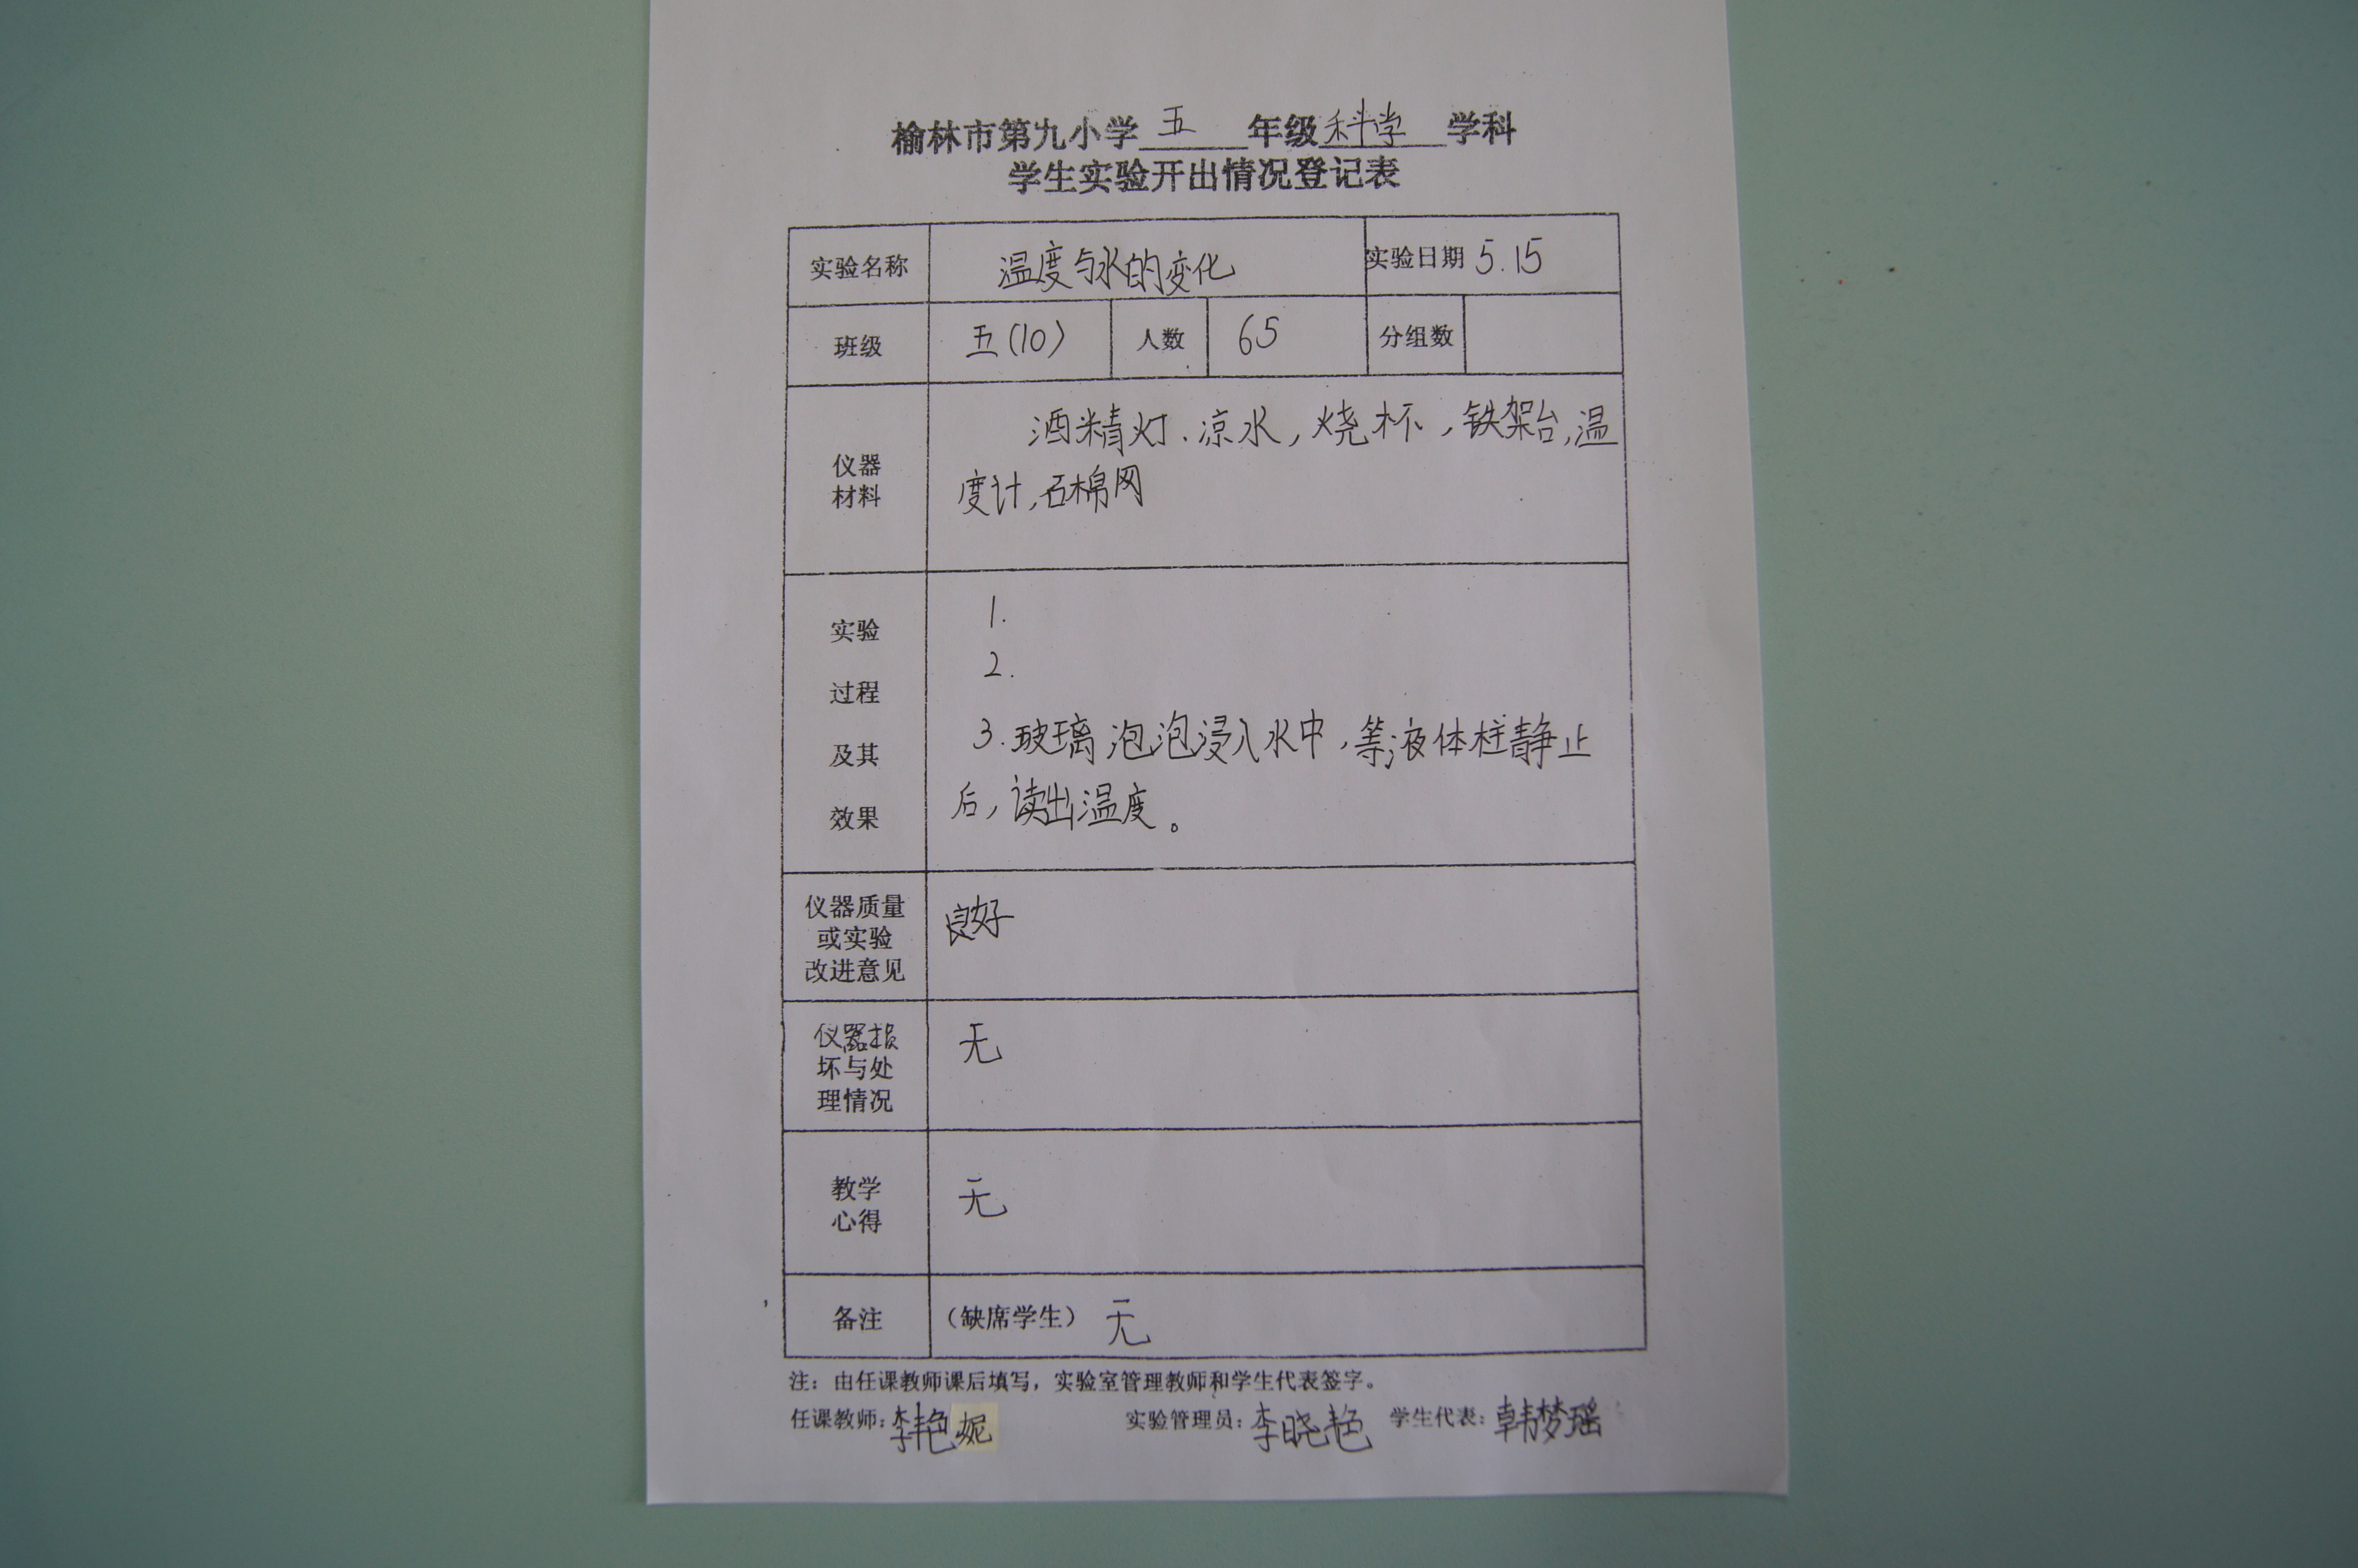 榆林市第九小学 五 年级 科学 学科
学生实验开出情况登记表
实验名称 温度与水的变化 实验日期 5.15
班级 五(10) 人数 65 分组数
仪器
材料
酒精灯、凉水,烧杯,铁架台,温
度计,石棉网
实验
过程
及其
效果
1.
2.
3.玻璃泡泡浸入水中,等液体柱静止
后,读出温度。
仪器质量
或实验
改进意见
良好
仪器损
坏与处
理情况
无
教学
心得
无
备注 (缺席学生) 无
注:由任课教师课后填写,实验室管理教师和学生代表签字。
任课教师:李艳妮 实验管理员:李晓艳 学生代表:韩梦瑶